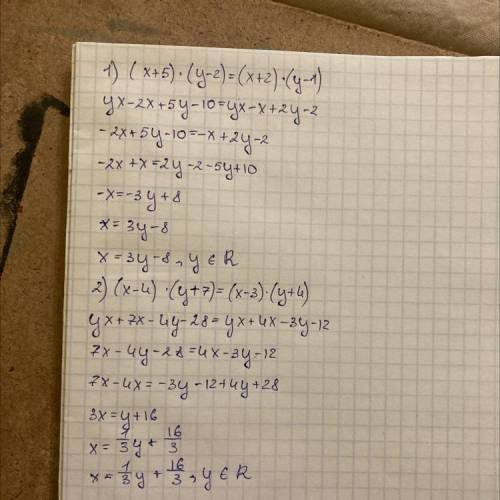 1) (x+5)·(y-2)=(x+2)·(y-1)
yx-2x+5y-10=yx-x+2y-2
-2x+5y-10=-x+2y-2
-2x+x=2y-2-5y+10
-x=-3y+8
x=3y-8
x=3y-8, y∈R
2) (x-4)·(y+7)=(x-3)·(y+4)
yx+7x-4y-28=yx+4x-3y-12
7x-4y-28=4x-3y-12
7x-4x=-3y-12+4y+28
3x=y+16
x=1/3y+16/3
x=1/3y+16/3, y∈R